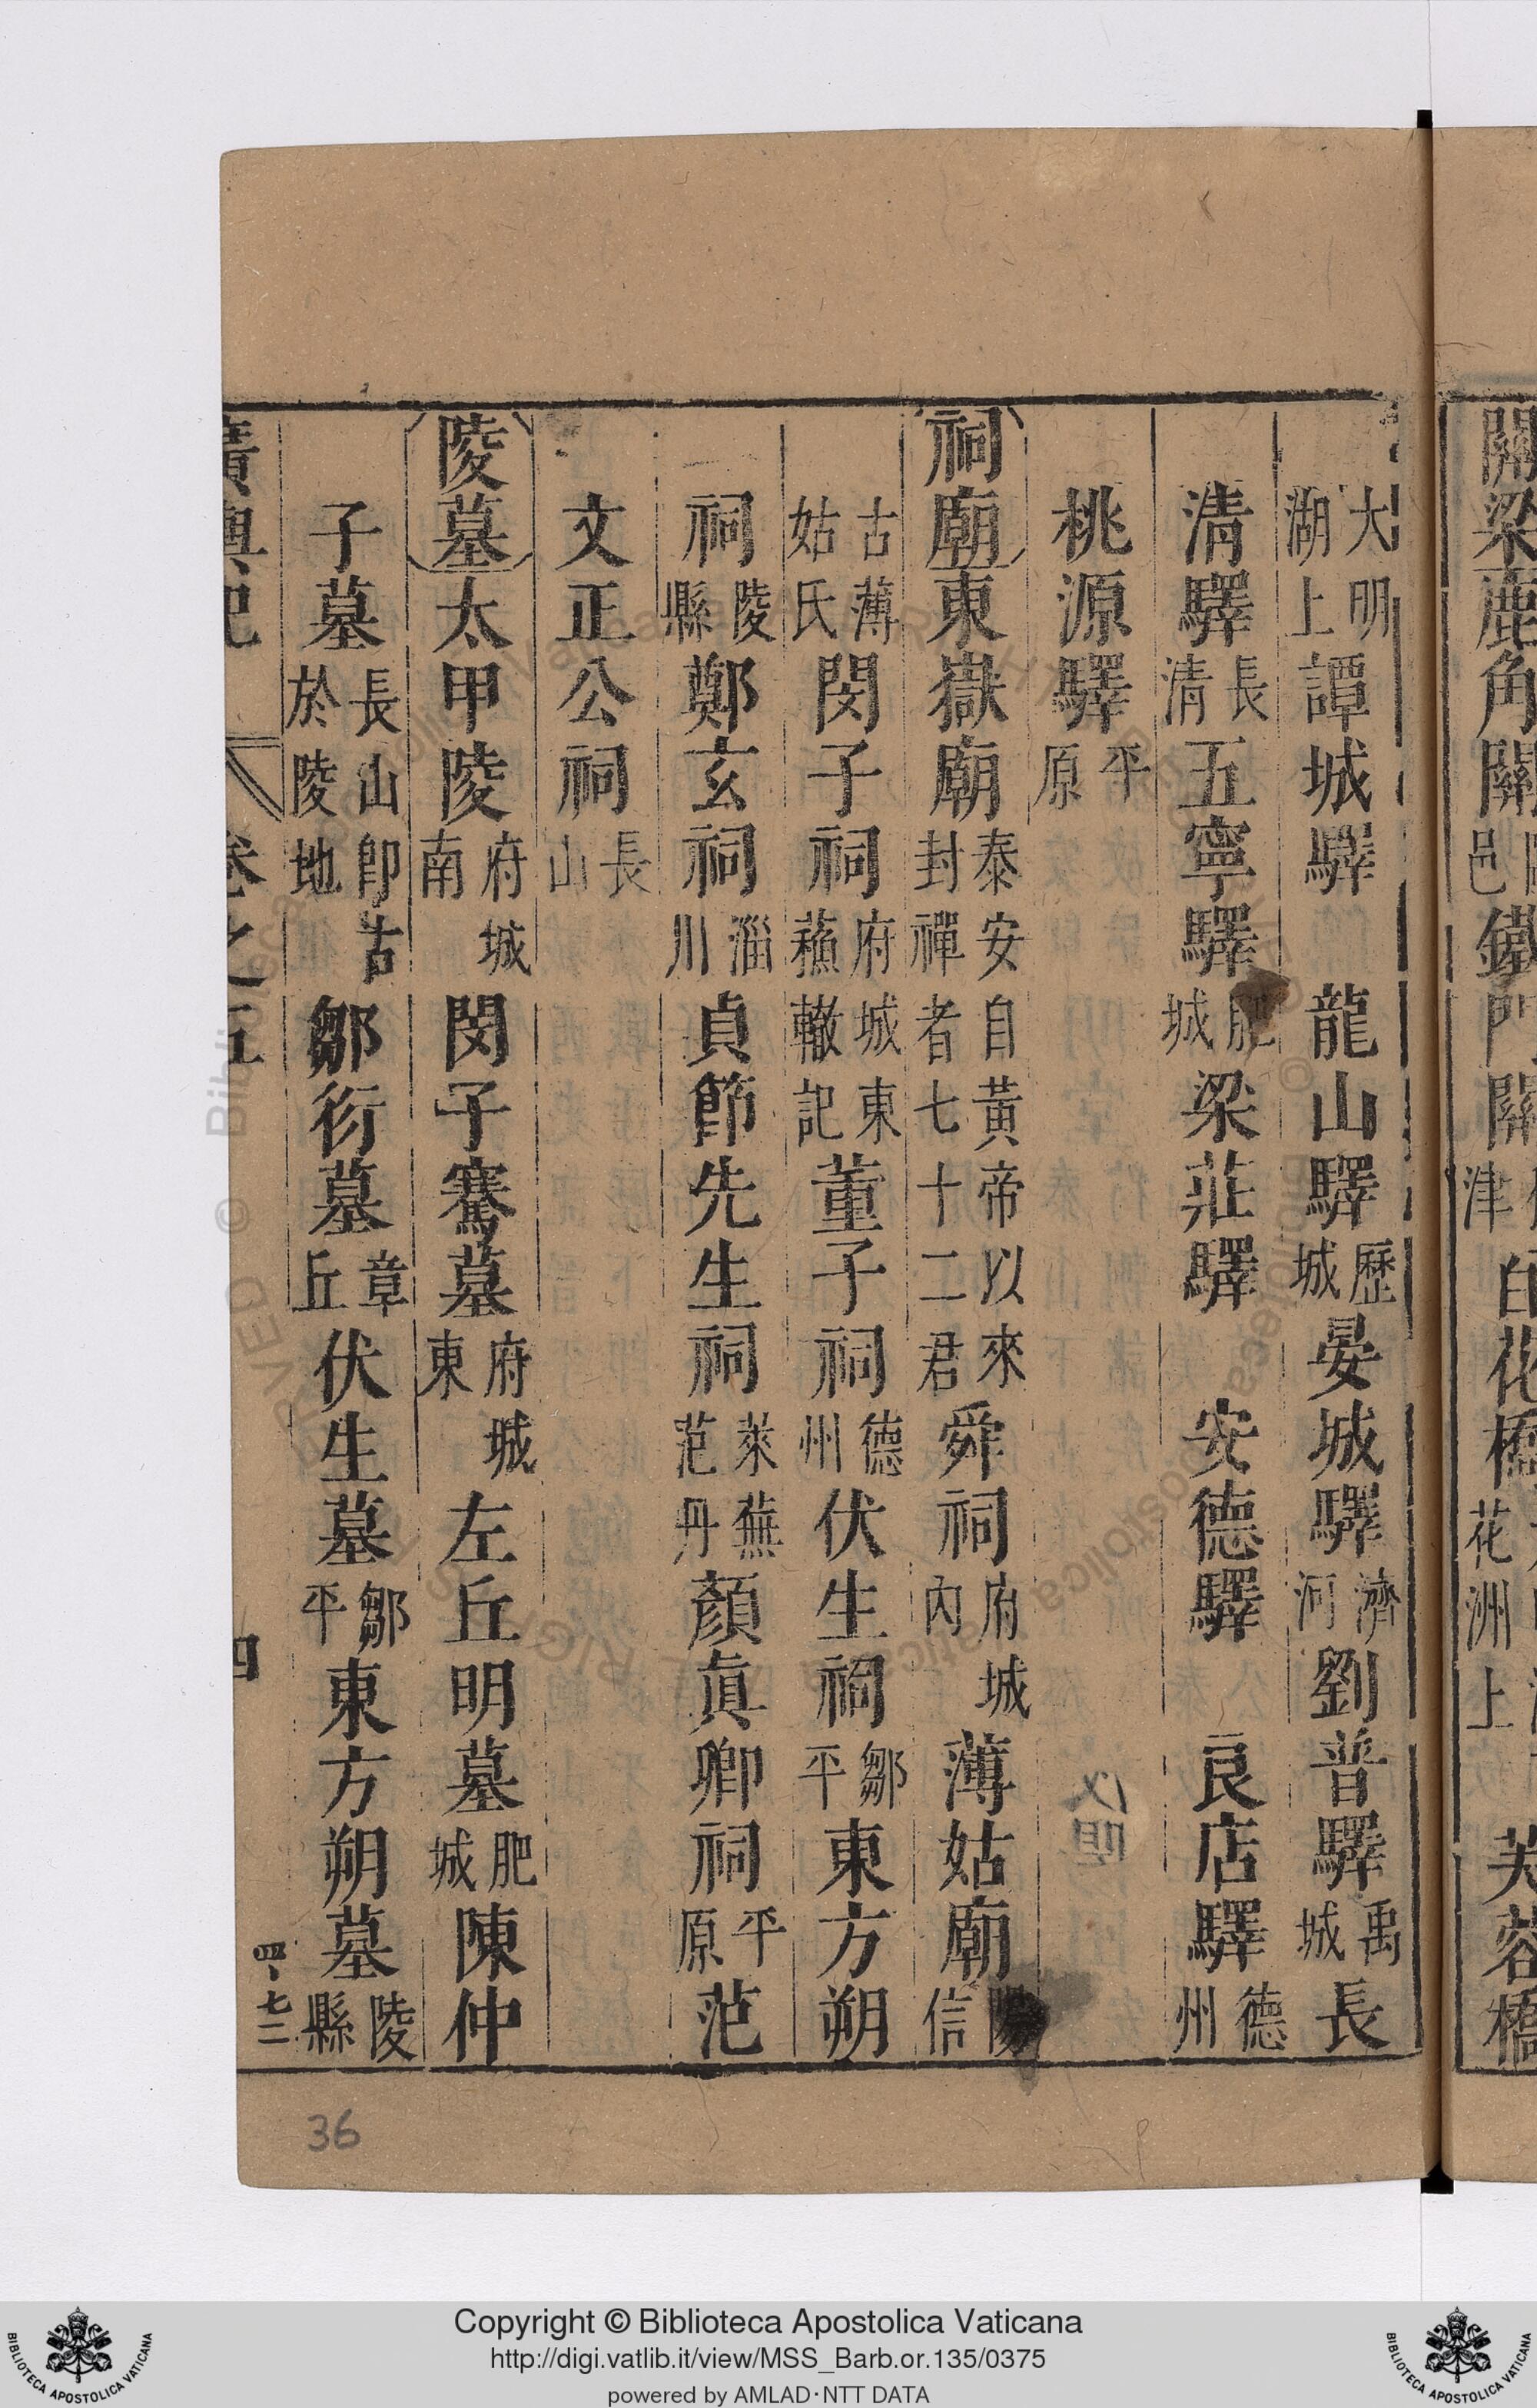 大明湖上譚城驛 龍山驛歷城晏城驛濟河劉普驛禹城長
清驛長清五寧驛肥城梁莊驛 安德驛 良店驛德州
桃源驛平原
祠廟東嶽廟泰安自黃帝以來封禪者七十二君舜祠府城內薄姑廟信
古薄姑氏閔子祠府城東蘇轍記董子祠德州伏生祠鄒平東方朔
祠陵縣鄭玄祠淄川貞節先生祠萊蕪范丹顏眞卿祠平原范
文正公祠長山
陵墓太甲陵府城南閔子騫墓府城東左丘明墓肥城陳仲
子墓長山卽古於陵地鄒衍墓章丘伏生墓鄒平東方朔墓陵縣
廣輿記 卷之五 四
四、七二
36
Copyright © Biblioteca Apostolica Vaticana
http://digi.vatlib.it/view/MSS_Barb.or.135/0375
powered by AMLAD·NTT DATA
BIBLIOTECA APOSTOLICA VATICANA
BIBLIOTECA APOSTOLICA VATICANA